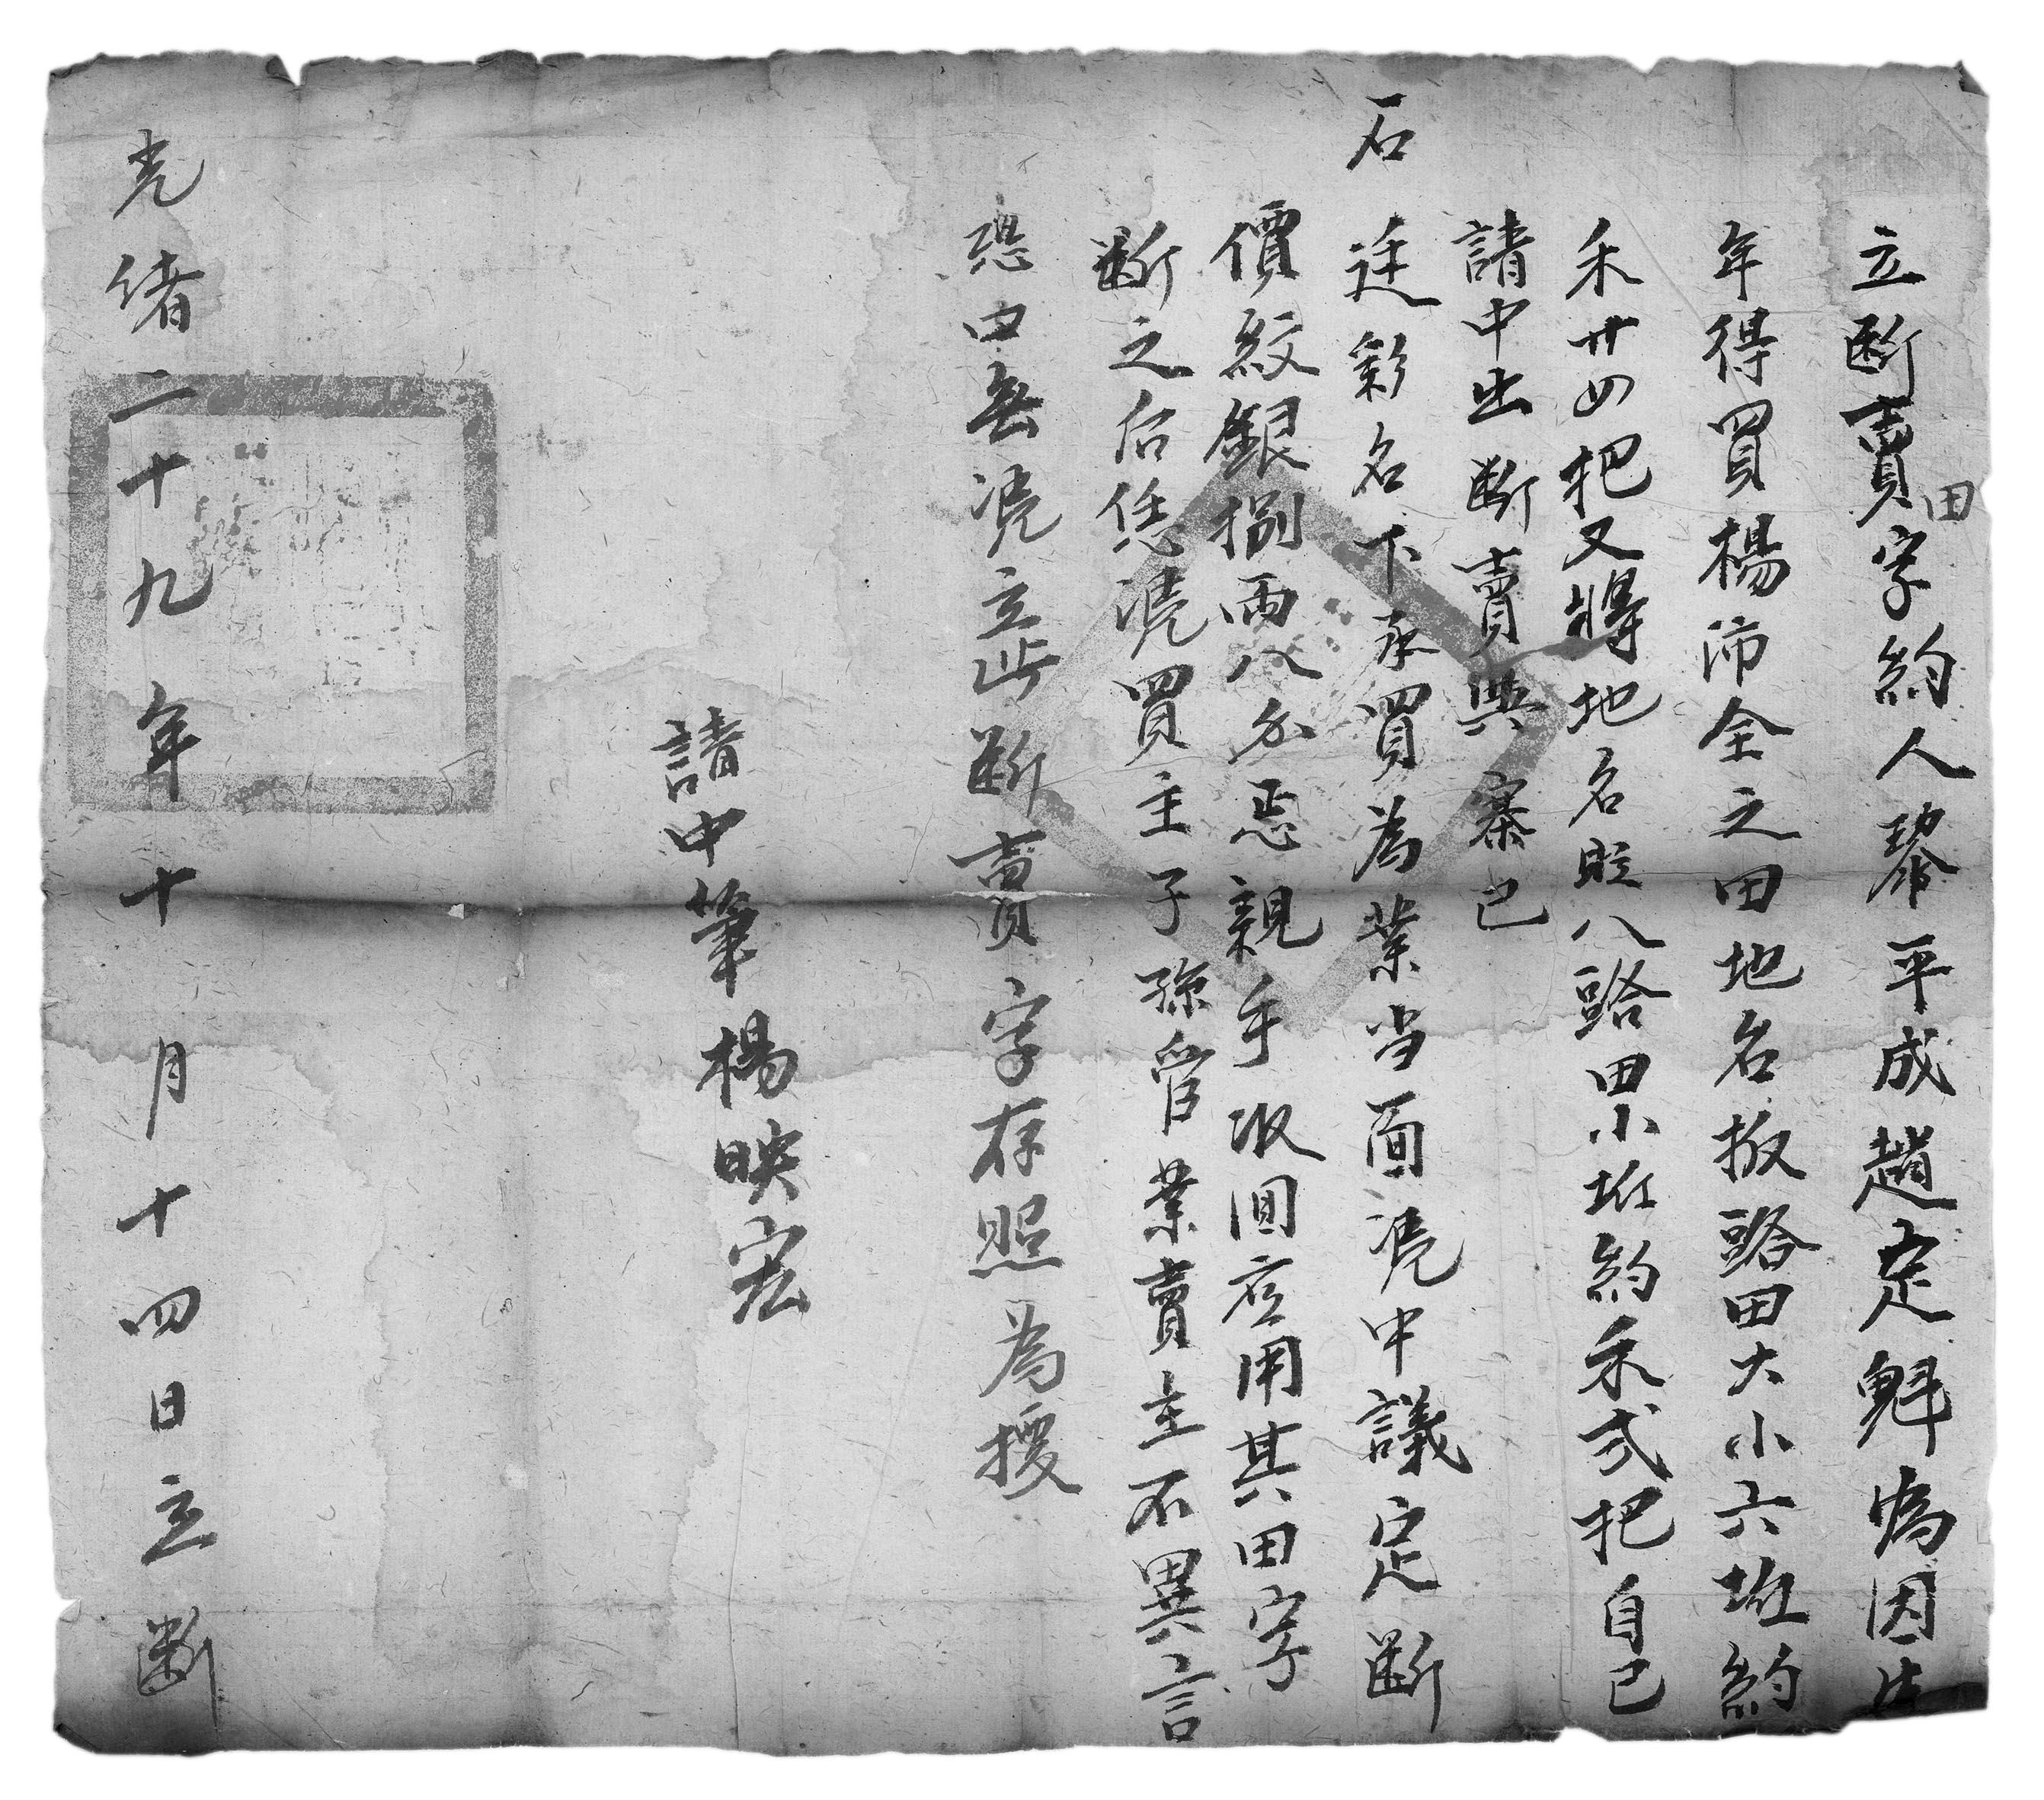 立断賣田字約人黎平成趙定魁為因先
年得買楊沛全之田地名扳豁田大小六坵約
禾廿四把又將地名貶八豁田小坵約禾弍把自己
請中出断賣與寨已
石廷彩名下承買為業当面凴中議定断
價紋銀捌両八分悉親手收囬应用其田字
断之后恁凴買主子孫管業賣主不異言
恐口無凴立此断賣字存照為援
請中筆楊映宏
光緒二十九年十月十四日立断